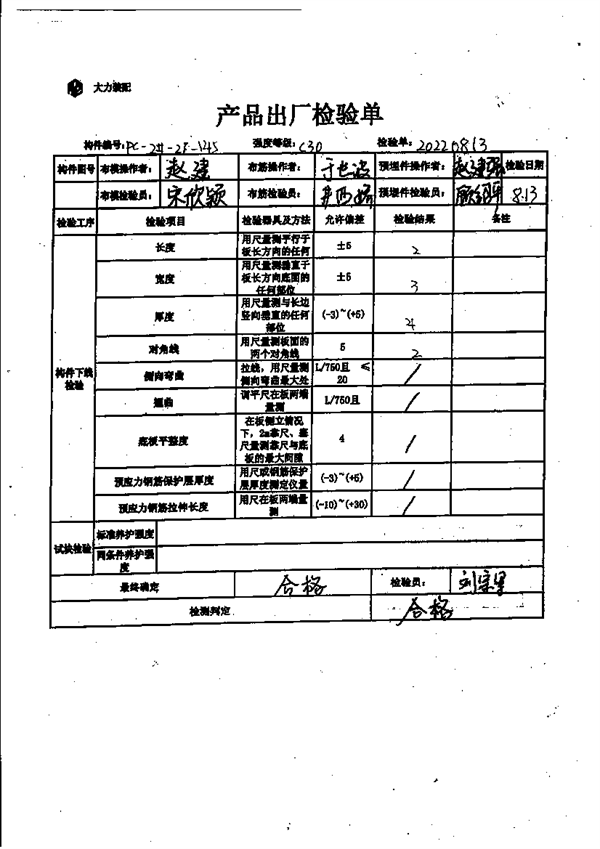 大力装配
产品出厂检验单
构件编号:PC-2#-2F-V45 强度等级:C30 检验单:20220813
构件图号 布模操作者: 赵建 布筋操作者: 预埋件操作者: 赵建 检验日期
布模检验员: 宋欣颖 布筋检验员: 预埋件检验员: 8.13
检验工序 检验项目 检验器具及方法 允许偏差 检验结果 备注
构件下线检验
长度 用尺量测平行于板长方向的任何 ±5 2
宽度 用尺量测垂直于板长方向底面的任何部位 ±5 3
厚度 用尺量测与长边竖向垂直的任何部位 (-3)~(+5) 4
对角线 用尺量测板面的两个对角线 5 2
侧向弯曲 拉线,用尺量测侧向弯曲最大处 L/750且 ≤20 /
翘曲 调平尺在板两端量测 L/750且 /
底板平整度 在板侧立情况下,2m靠尺、塞尺量测靠尺与底板的最大间隙 4 /
预应力钢筋保护层厚度 用尺或钢筋保护层厚度测定仪量 (-3)~(+5) /
预应力钢筋拉伸长度 用尺在板两端量测 (-10)~(+30) /
试块检验 标准养护强度
同条件养护强度
最终确定 合格 检验员:
检测判定 合格